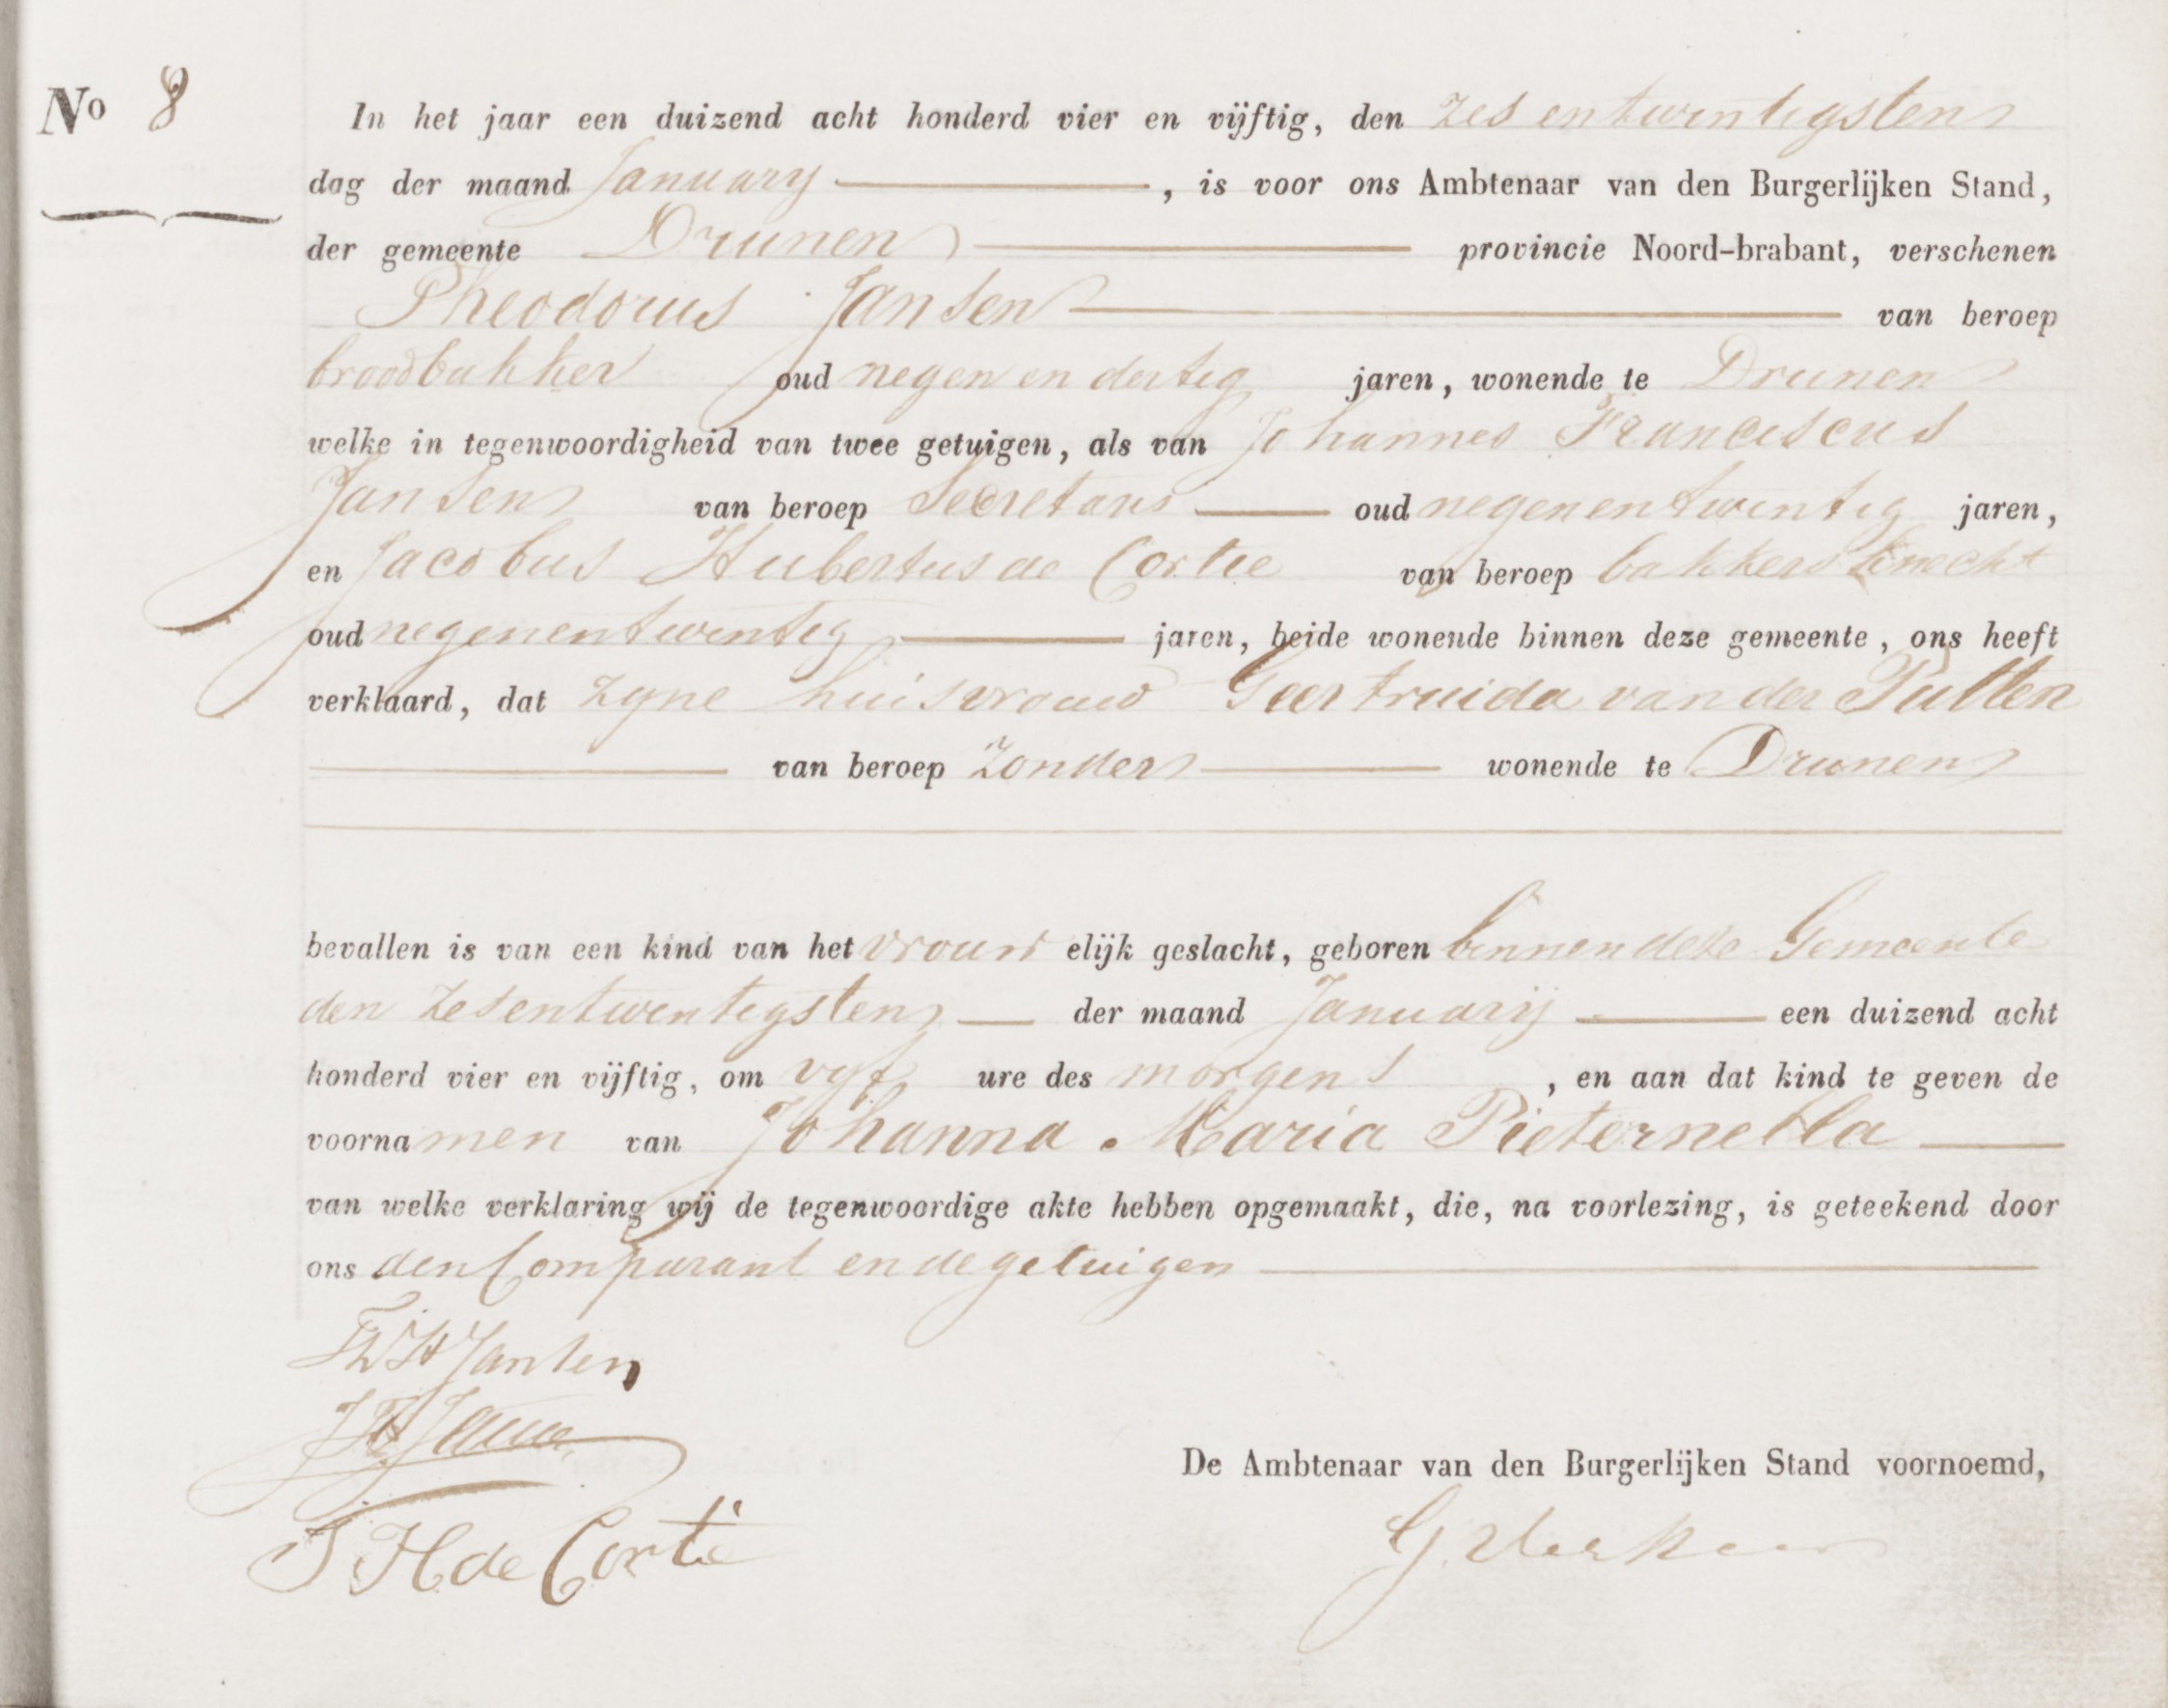 No 8
In het jaar een duizend acht honderd vier en vijftig, den zes en twintigsten
dag der maand January , is voor ons Ambtenaar van den Burgerlijken Stand,
der gemeente Drunen provincie Noord-brabant, verschenen
Theodorus Jansen van beroep
broodbakker oud negen en dertig jaren, wonende te Drunen
welke in tegenwoordigheid van twee getuigen, als van Johannes Franciscus
Jansen van beroep Secretaris oud negenentwintig jaren,
en Jacobus Hubertus de Cortie van beroep bakkersknecht
oud negenentwintig jaren, beide wonende binnen deze gemeente, ons heeft
verklaard, dat zyne huisvrouw Geertruida van der Pullen
van beroep zonder wonende te Drunen
bevallen is van een kind van het vrouw elijk geslacht, geboren binnen deze Gemeente
den zesentwintigsten der maand January een duizend acht
honderd vier en vijftig, om vyf ure des morgens , en aan dat kind te geven de
voornamen van Johanna Maria Pieternella
van welke verklaring wij de tegenwoordige akte hebben opgemaakt, die, na voorlezing, is geteekend door
ons den Comparant en de getuigen
Jansen
De Ambtenaar van den Burgerlijken Stand voornoemd,
J H de Cortie